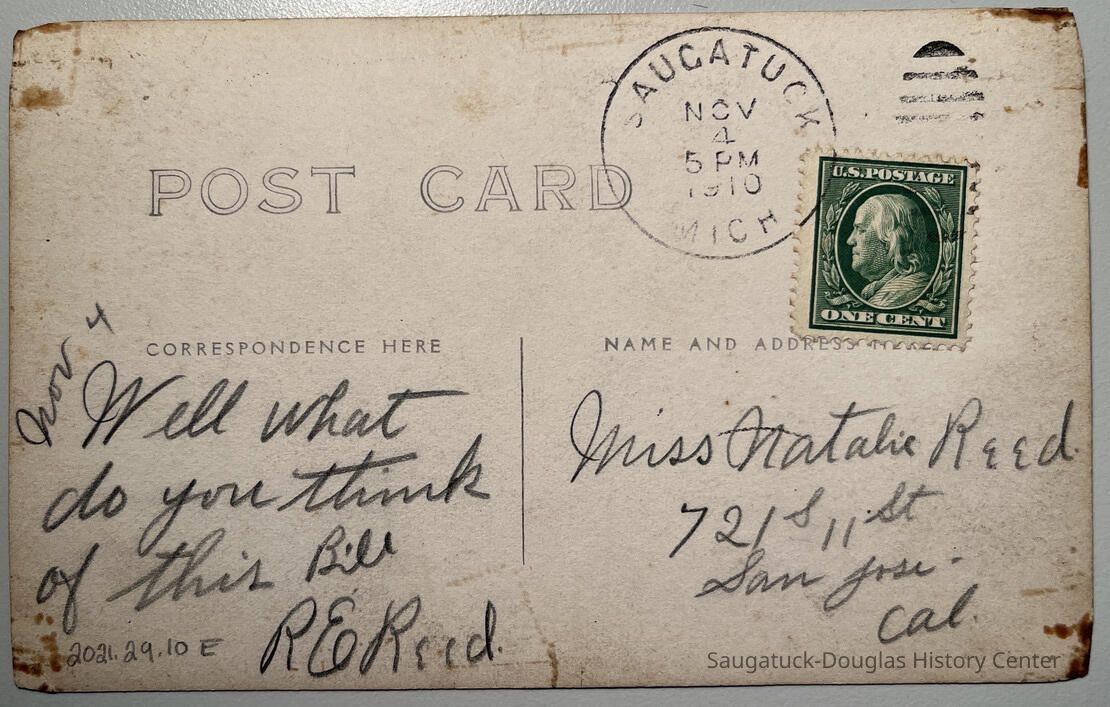 SAUGATUCK
NOV
4
5 PM
1910
MICH
POST CARD
U.S. POSTAGE
ONE CENT
CORRESPONDENCE HERE
NAME AND ADDRESS
Nov 4
Well what
do you think
of this Bill
R E Reed.
Miss Natalie Reed.
721 S 11 St
San Jose.
Cal.
2021.29.10 E
Saugatuck-Douglas History Center